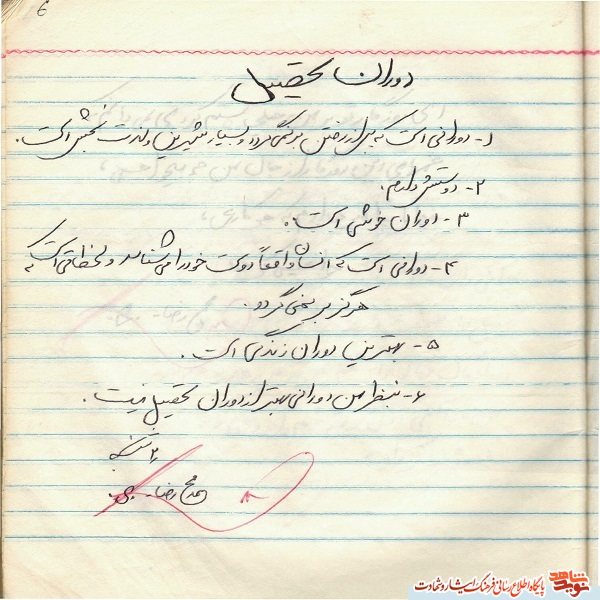 6
دوران تحصیل
۱- دورانی است که پس از رفتن بر نمی‌گردد و بسیار شیرین و لذت بخش است.
۲- دوستش دارم.
۳- دوران خوشی است.
۴- دورانی است که انسان واقعاً دوست خود را می‌شناسد و لحظاتی است که
هرگز بر نمی‌گردد.
۵- بهترین دوران زندگی است.
۶- بنظر من دورانی بهتر از دوران تحصیل نیست.
محمد رضا
نوید شاهد
پایگاه اطلاع رسانی فرهنگ ایثار و شهادت